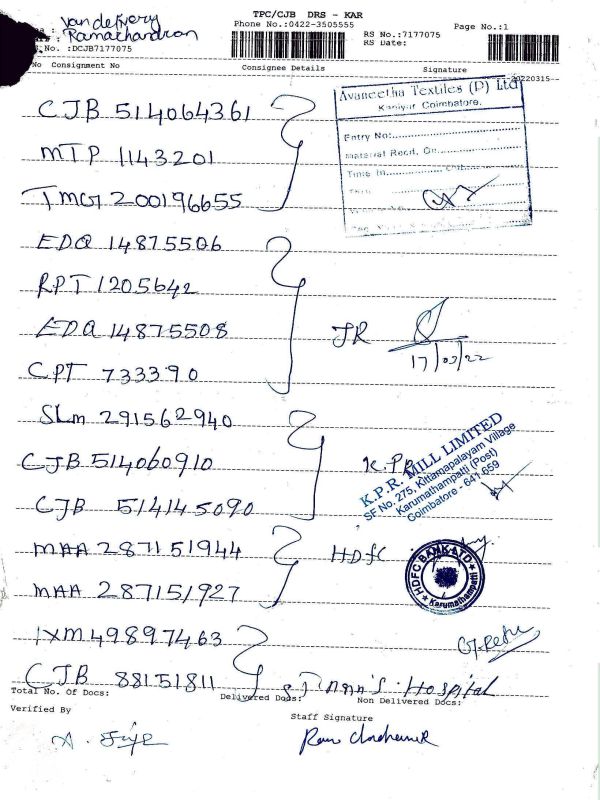 TPC/CJB DRS - KAR
Van delivery
Ramachandran
Phone No.:0422-3505555
RS No.:7177075
Page No.:1
RS Date:
No. :DCJB7177075
No Consignment No Consignee Details Signature
20220315
CJB 514064361
MTP 1143201
TMG 200196655
Avaneetha Textiles (P) Ltd
Kaniyur Coimbatore.
Entry No:
Material Recd. On
Time In
EDQ 14875506
RPT 1205642
EDQ 14875508
CPT 733390
JR
17/03/22
SLM 291562940
CJB 514060910
CJB 514145090
K.P.R
K.P.R. MILL LIMITED
SF No. 275, Kittampalayam Village
Karumathampatti (Post)
Coimbatore - 641 659
MAA 287151944
MAA 287151927
HDFC
HDFC BANK LTD
Karumathampatti
IXM 49897463
CJB 88151811
ST Ann's Hospital
Total No. Of Docs: Delivered Docs: Non Delivered Docs:
Verified By
Staff Signature